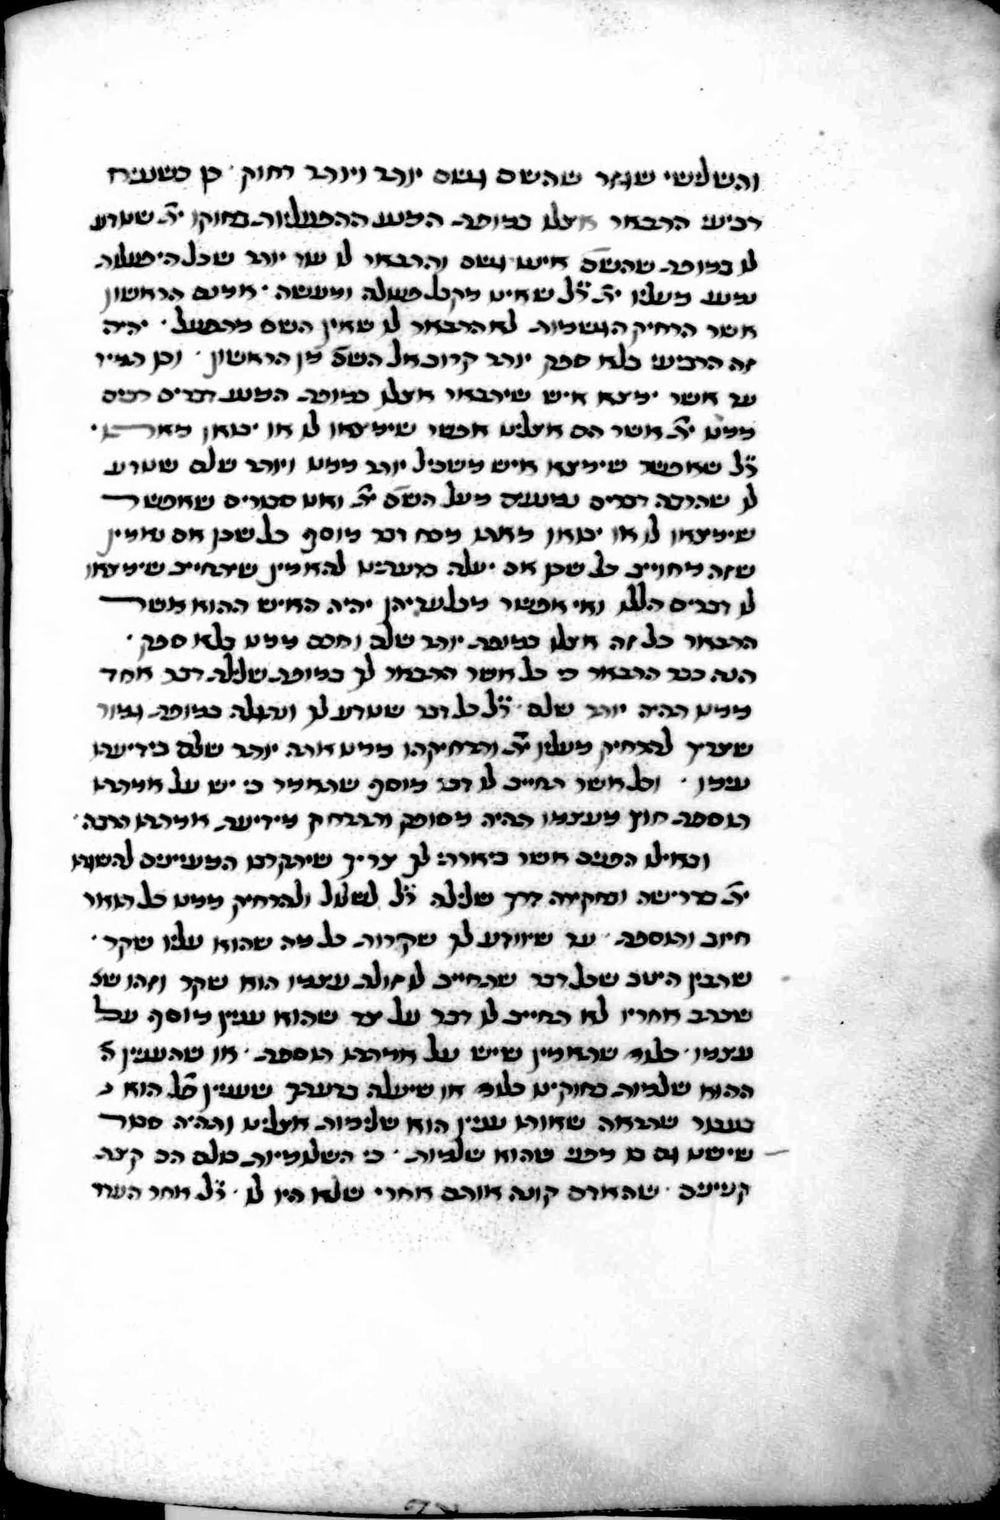 והשלישי שגזר שהשם גשם יותר ויותר רחוק · כן כשעניינו
רביעי התבאר אצלו במופת המנע ההפעליות בחוקו ית׳ שנודע
לו במופת שהשם איננו גשם והתבאר לו עוד יותר שכל היפעלות
נמנע מעליו ית׳ ר״ל שאינו מקבל פעולה ומעשה · אמנם הראשון
אשר הרחיק הגשמות לא התבאר לו שאין השם מתפעל · יהיה
זה הרביעי בלא ספק יותר קרוב אל השם מן הראשון · וכן תמיד
עד אשר ימצא איש שיתבאר אצלו במופת המנע דברים רבים
ממנו ית׳ אשר הם אצלינו אפשר שימצאו לו או יבואו מאתו ·
ר״ל שאפשר שימצא איש משכיל יותר ממנו ויותר שלם שנודע
לו שהרבה דברים נמנעים מעל השם ית׳ ואנו סבורים שאפשר
שימצאו לו או יבואו מאתו מבח דבר מוסף כל שכן אם נאמין
שזה מחוייב כל שכן אם יעלה בדעתינו להאמין שיתחייב שימצאו
לו דברים הללו ואי אפשר מבלעדיהן יהיה האיש ההוא אשר
התבאר כל זה אצלו במופת יותר שלם וחכם ממנו בלא ספק ·
הנה כבר התבאר כי כל אשר התבאר לך במופת שלילת דבר אחד
ממנו תהיה יותר שלם · ר״ל כל דבר שנודע לך ונתגלה במופת גמור
שצריך להרחיק מעליו ית׳ ותרחיקהו ממנו אתה יותר שלם בידיעתו
עימו · וכל אשר תחייב לו דבר מוסף שתאמר כי יש על אמתתו
תוספת חוץ מעצמו תהיה מסופק ותתרחק מידיעת אמתתו הרבה ·
ובאילו הפנים אשר ביארתי לך צריך שיתקרבו המעיינים להשגתו
ית׳ בדרישה ובחקירה דרך שלילה ר״ל לשלול ולהרחיק ממנו כל תואר
חיוב ותוספת · עד שיוודע לך שקרות כל מה שהוא עליו שקר ·
שתבין היטב שכל דבר שתחייב לו זולת עצמו הוא שקר וזהו שא׳
שכתב אחריו לא תחייב לו דבר על צד שהוא עניין מוסף על
עצמו · כלומר שתאמין שיש על אמתתו תוספת · או שהעניין ה׳
ההוא שלמות בחוקינו כלומר או שיעלה בדעתך שעניין פל׳ הוא כ׳
בעבור שתראה שאותו עניין הוא שלימות אצלינו ותהיה סבור
שישנו גם כן מפני שהוא שלמות · כי השלמיות כולם הם קצת
קניינים · שהאדם קונה אותם אחרי שלא היו לו · ר״ל אחר העדר